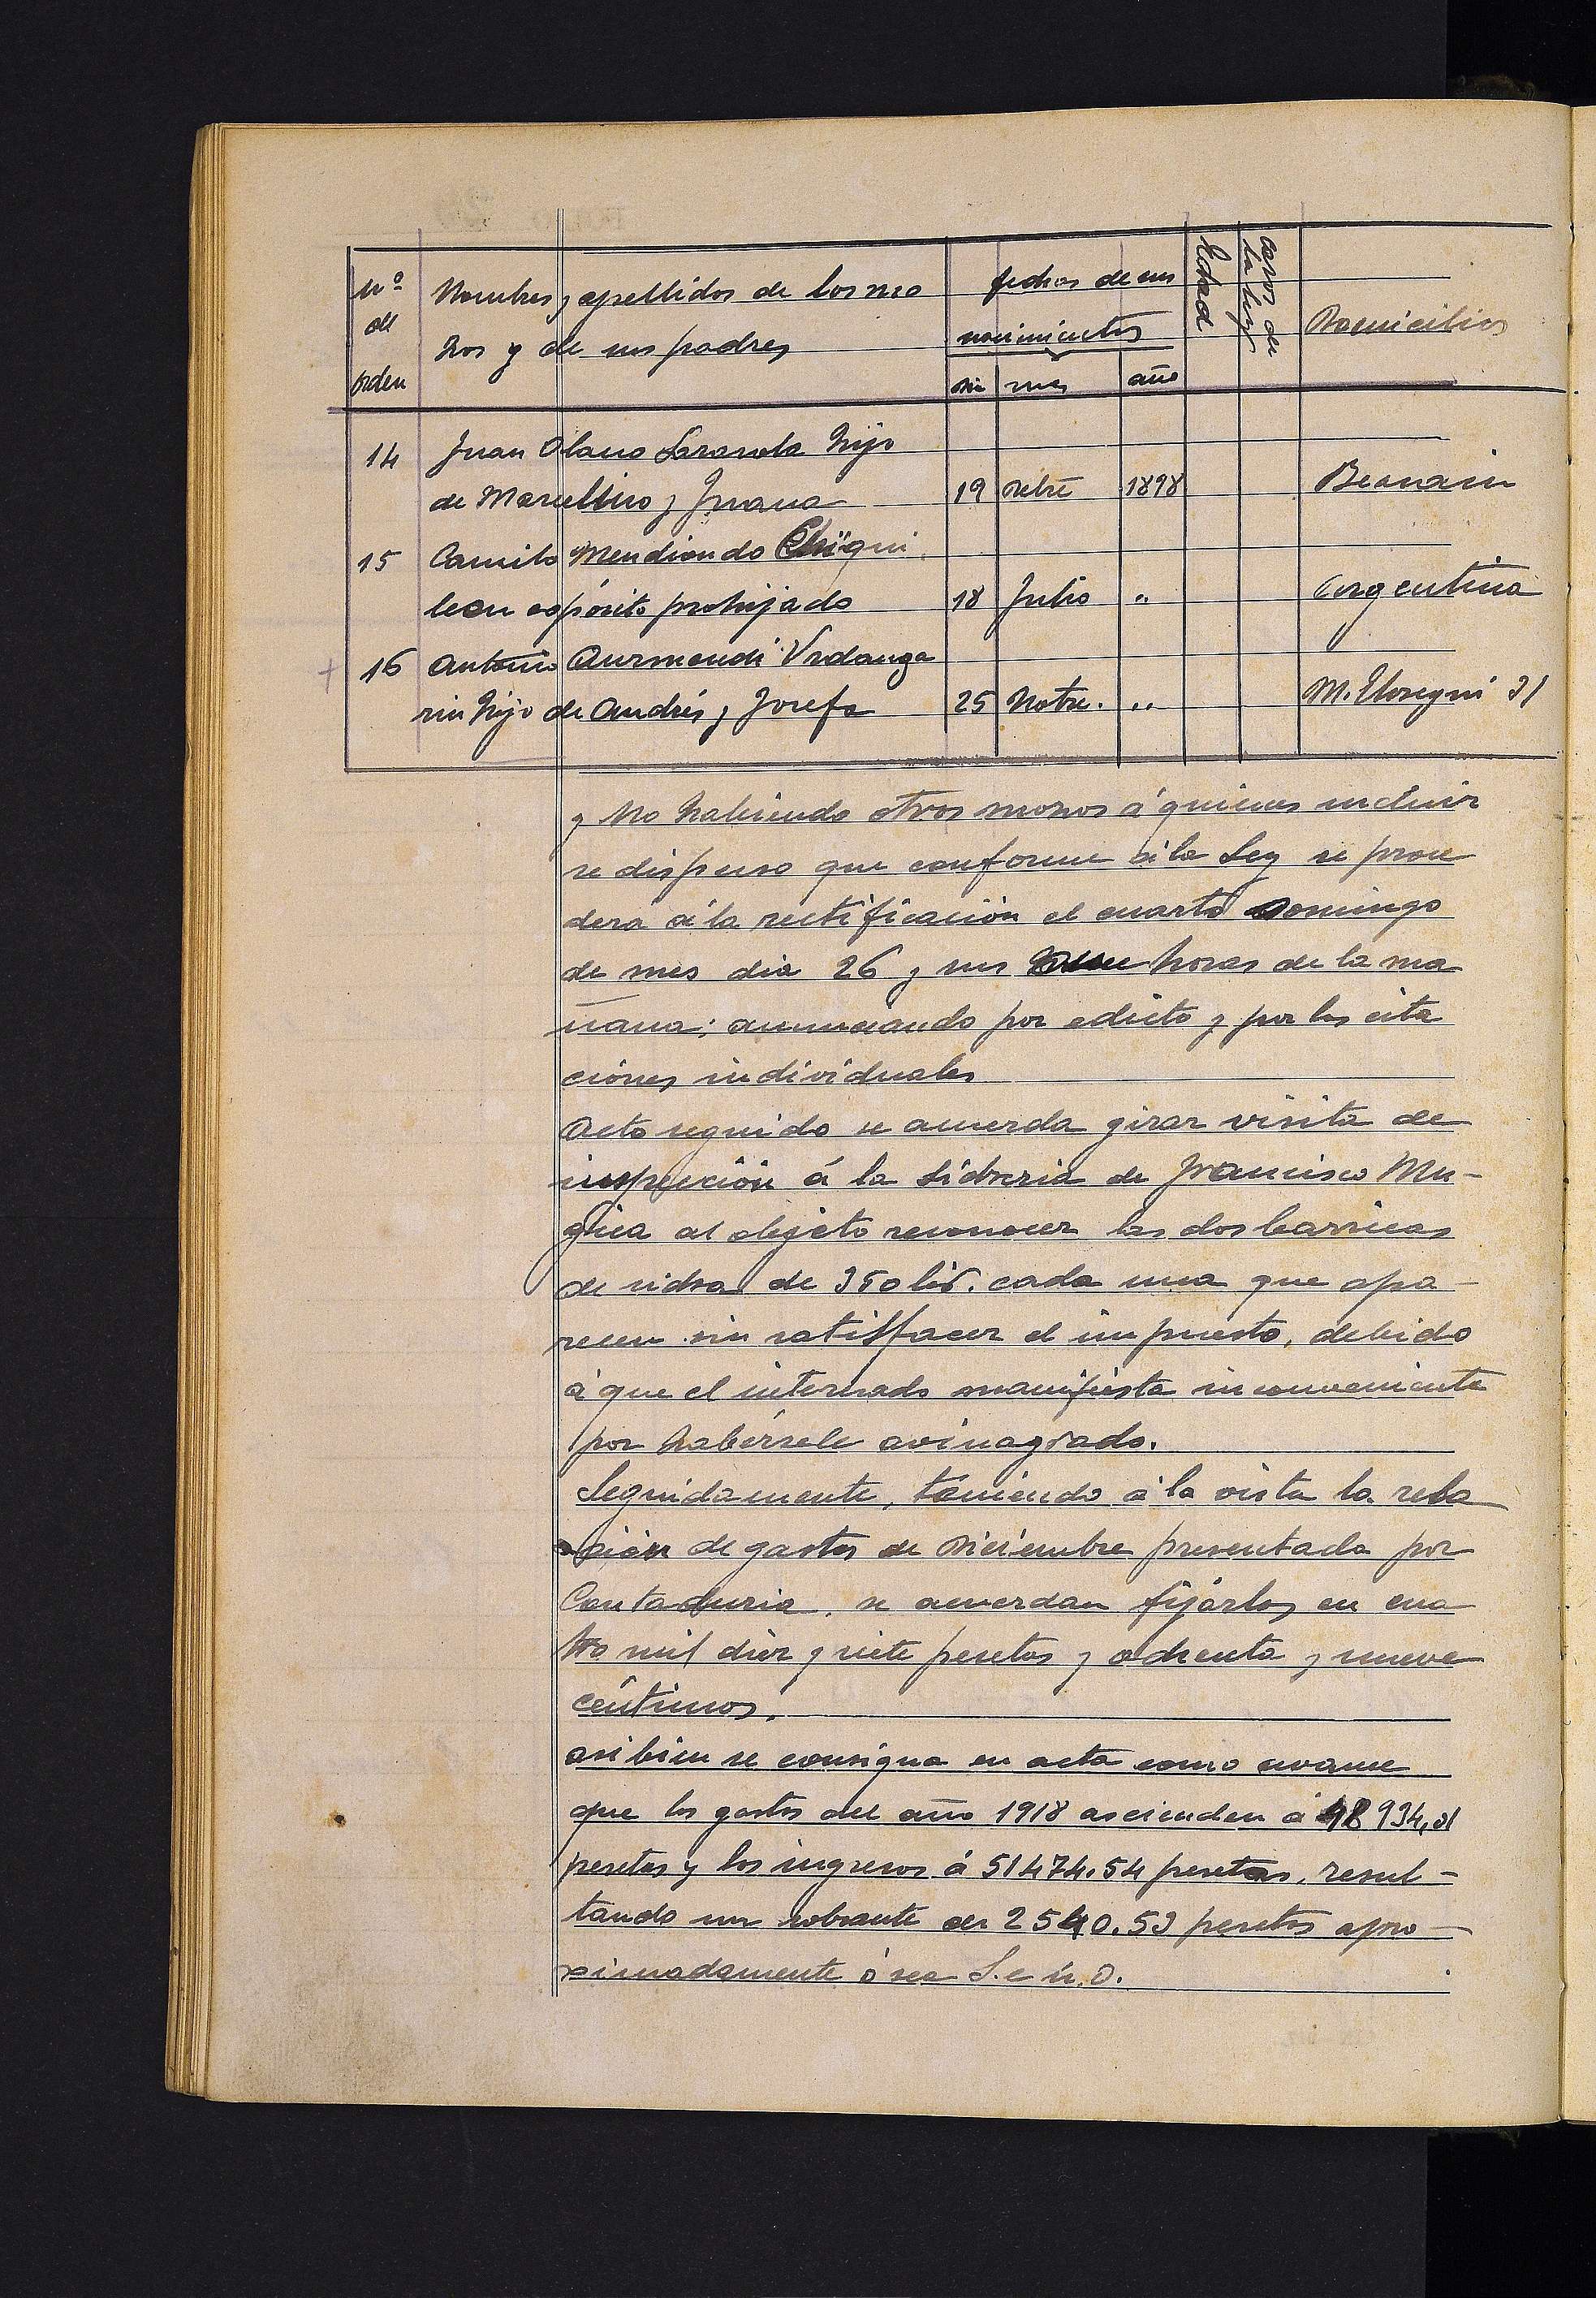 nº de orden | Nombres y apellidos de los mo | fechas de sus | Edad | Casos de la ley | Domicilios
zos y de sus padres | nacimientos
dia | mes | año
14 Juan Olano Lasarte hijo
de Marcelino y Juana 19 Setbre 1898 Beasain
15 Camilo Mendiondo
expósito prohijado 18 Julio " Argentina
16 Antonio Aurmendi Urdanga
rin hijo de Andrés y Josefa 25 Novbre. " M. Elosegui 31
y No habiendo otros mozos á quienes incluir
se dispuso que conforme á la Ley se proce
dera á la rectificación el cuarto Domingo
de mes dia 26 y sus horas de la ma
ñana; anunciando por edicto y por las cita
ciones individuales
Acto seguido se acuerda girar visita de
inspección á la Sidreria de Francisco Mu-
gica al objeto reconocer las dos barricas
de sidra de 350 lit. cada una que apa-
recen sin satisfacer el impuesto, debido
á que el interesado manifiesta inconveniente
por habérsele avinagrado.
Seguidamente, teniendo á la vista la rela
ción de gastos de Diciembre presentada por
Contaduria, se acuerdan fijarlos en cua
tro mil diez y siete pesetas y ochenta y nueve
céntimos.
asi bien se consigna en acta como avance
que los gastos del año 1918 ascienden á 48934,01
pesetas y los ingresos á 51474.54 pesetas, resul-
tando un sobrante de 2540.53 pesetas apro-
ximadamente ó sea S. e ú. O.